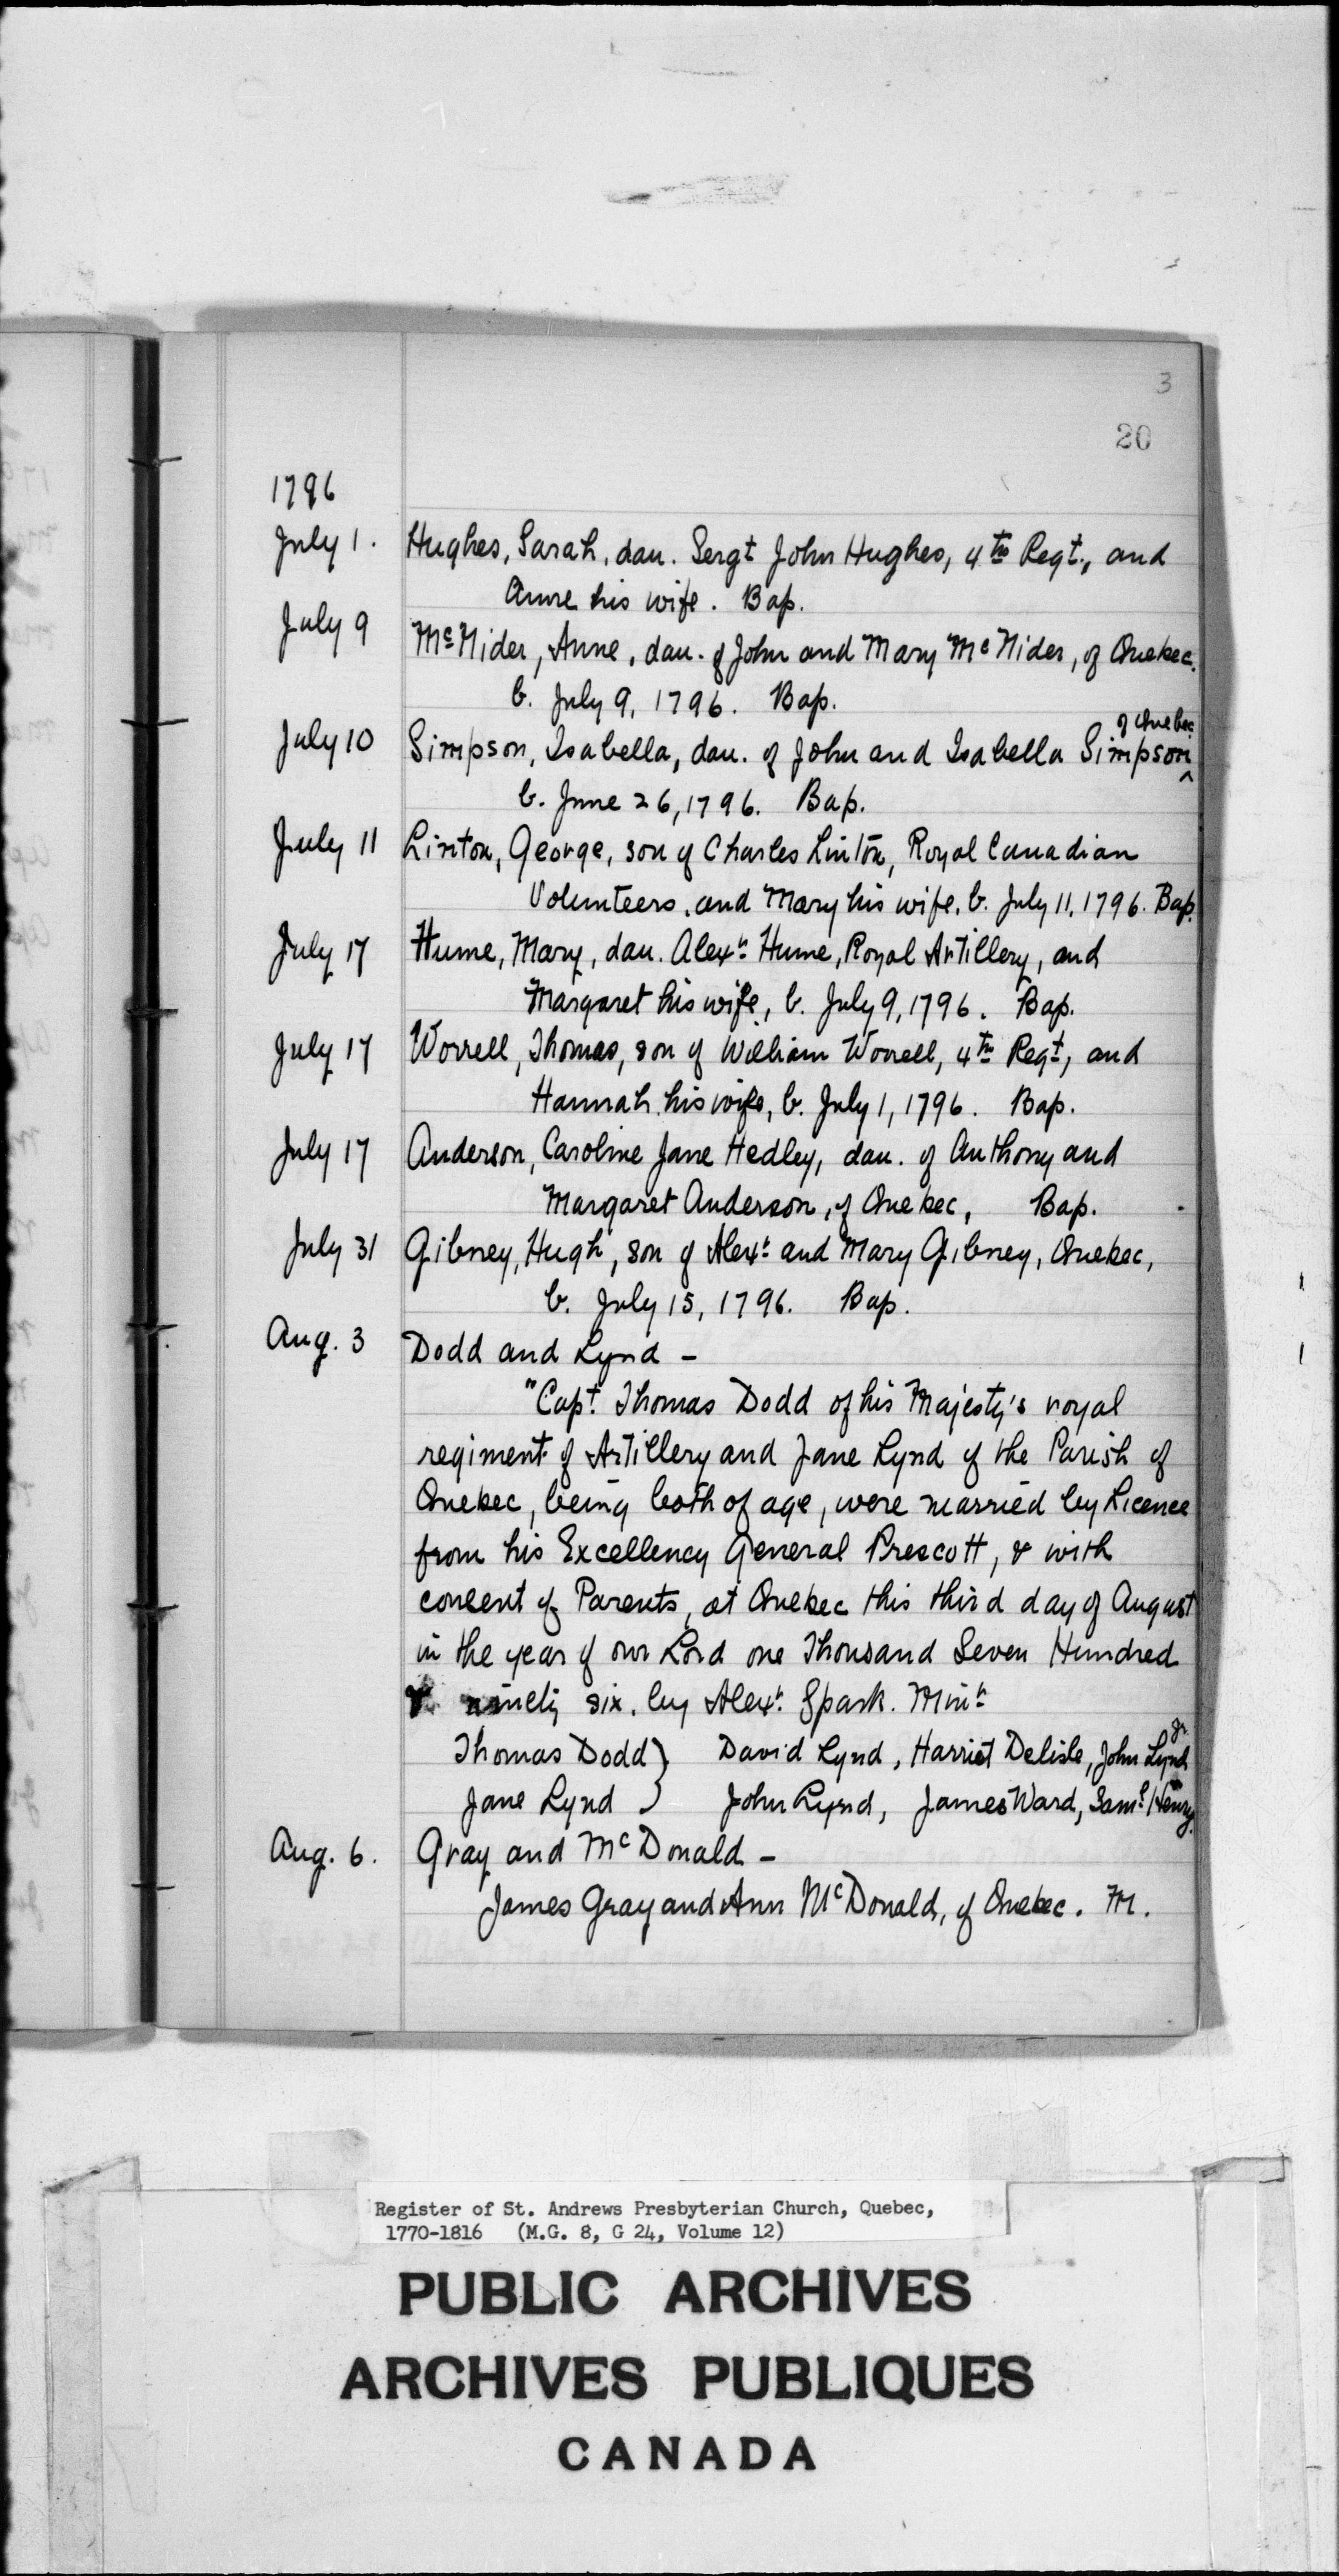 3
20
1796
July 1. Hughes, Sarah, dau. Sergt John Hughes, 4th Regt., and
Anne his wife. Bap.
July 9 McNider, Anne, dau. of John and Mary McNider, of Quebec.
b. July 9, 1796. Bap.
of Quebec
July 10 Simpson, Isabella, dau. of John and Isabella Simpson ^
b. June 26, 1796. Bap.
July 11 Linton, George, son of Charles Linton, Royal Canadian
Volunteers, and Mary his wife, b. July 11, 1796. Bap.
July 17 Hume, Mary, dau. Alexr. Hume, Royal Artillery, and
Margaret his wife, b. July 9, 1796. Bap.
July 17 Worrell, Thomas, son of William Worrell, 4th Regt, and
Hannah his wife, b. July 1, 1796. Bap.
July 17 Anderson, Caroline Jane Hedley, dau. of Anthony and
Margaret Anderson, of Quebec, Bap.
July 31 Gibney, Hugh, son of Alexr. and Mary Gibney, Quebec,
b. July 15, 1796. Bap.
Aug. 3 Dodd and Lynd -
"Capt. Thomas Dodd of his Majesty's royal
regiment of Artillery and Jane Lynd of the Parish of
Quebec, being both of age, were married by Licence
from his Excellency General Prescott, & with
consent of Parents, at Quebec this third day of August
in the year of our Lord one Thousand Seven Hundred
& ninety six. by Alexr. Spark. Minr.
Thomas Dodd } David Lynd, Harriet Delisle, John Lynd Jr.
Jane Lynd } John Lynd, James Ward, Saml. Henry."
Aug. 6. Gray and McDonald -
James Gray and Ann McDonald, of Quebec. M.
Register of St. Andrews Presbyterian Church, Quebec,
1770-1816 (M.G. 8, G 24, Volume 12)
PUBLIC ARCHIVES
ARCHIVES PUBLIQUES
CANADA